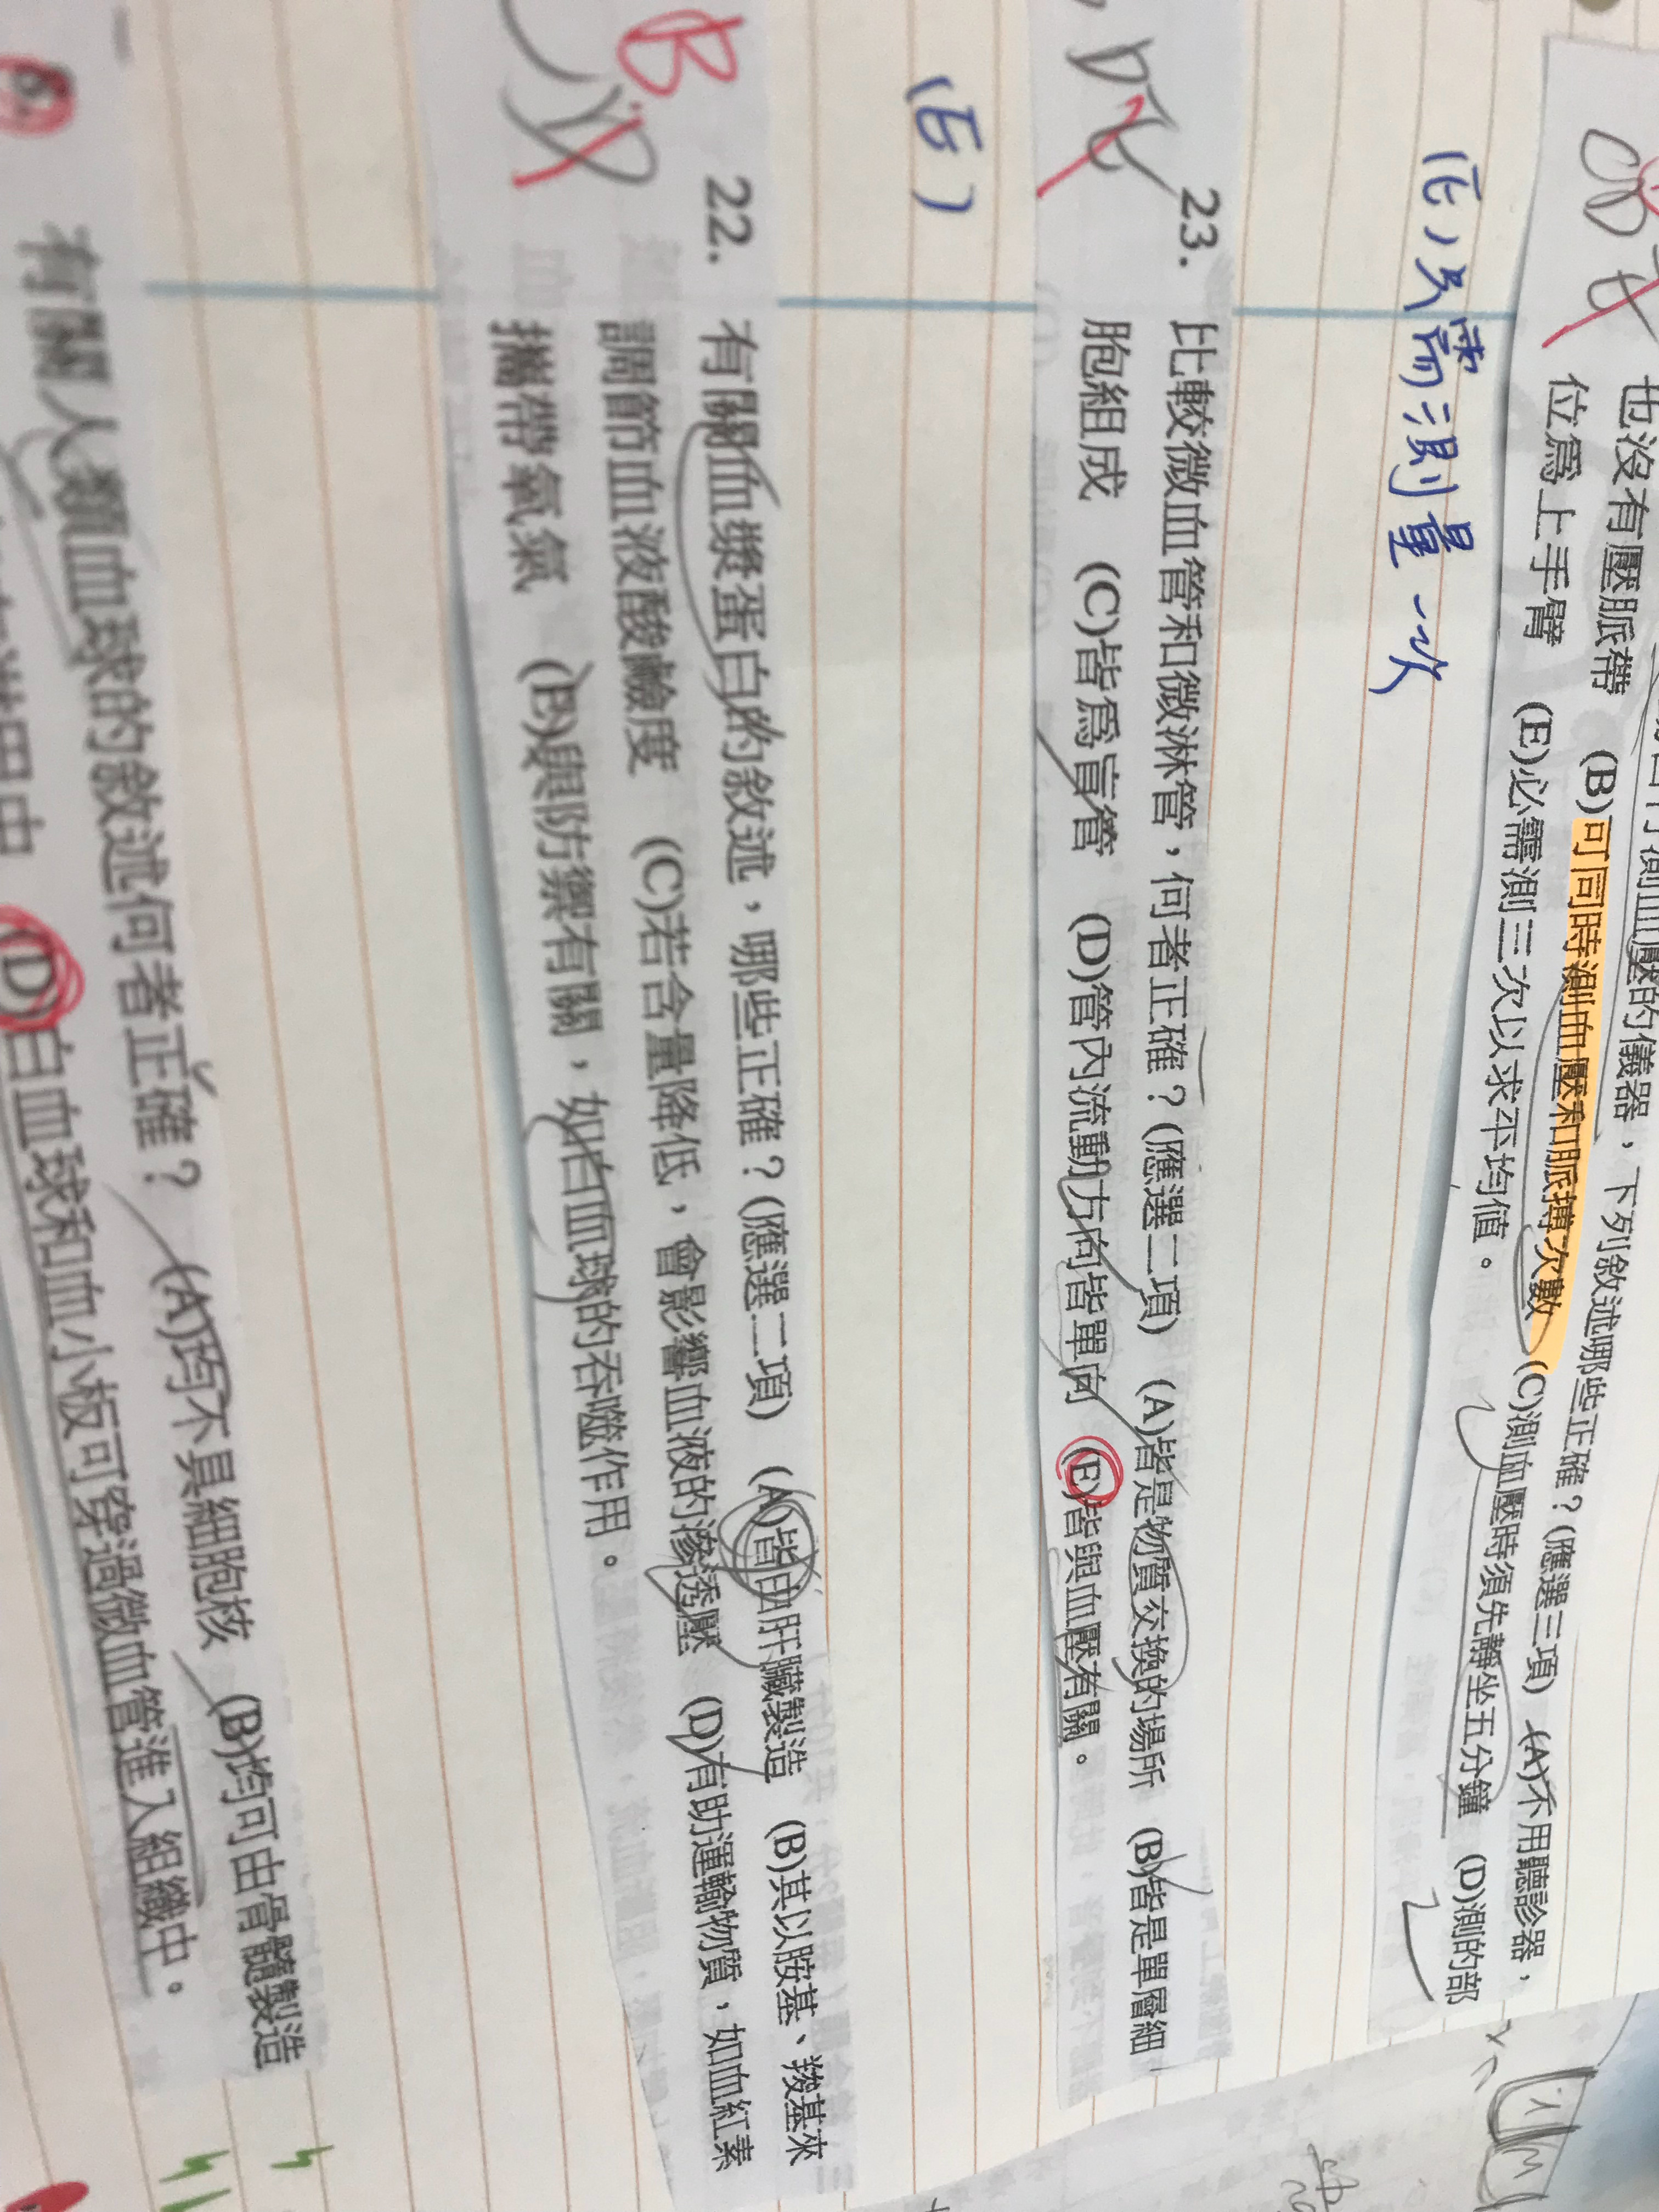 測血壓的儀器，下列敘述哪些正確？(應選三項) (A)不用聽診器，
也沒有壓脈帶 (B)可同時測血壓和脈搏次數 (C)測血壓時須先靜坐五分鐘 (D)測的部
位爲上手臂 (E)必需測三次以求平均值。
(E)只需測量一次
23. 比較微血管和微淋管，何者正確？(應選二項) (A)皆是物質交換的場所 (B)皆是單層細
胞組成 (C)皆爲盲管 (D)管內流動方向皆單向 (E)皆與血壓有關。
(E)
22. 有關血漿蛋白的敘述，哪些正確？(應選二項) (A)皆由肝臟製造 (B)其以胺基、羧基來
調節血液酸鹼度 (C)若含量降低，會影響血液的滲透壓 (D)有助運輸物質，如血紅素
攜帶氧氣 (E)與防禦有關，如白血球的吞噬作用。
B
有關人類血球的敘述何者正確？ (A)均不具細胞核 (B)均可由骨髓製造
(D)白血球和血小板可穿過微血管進入組織中。